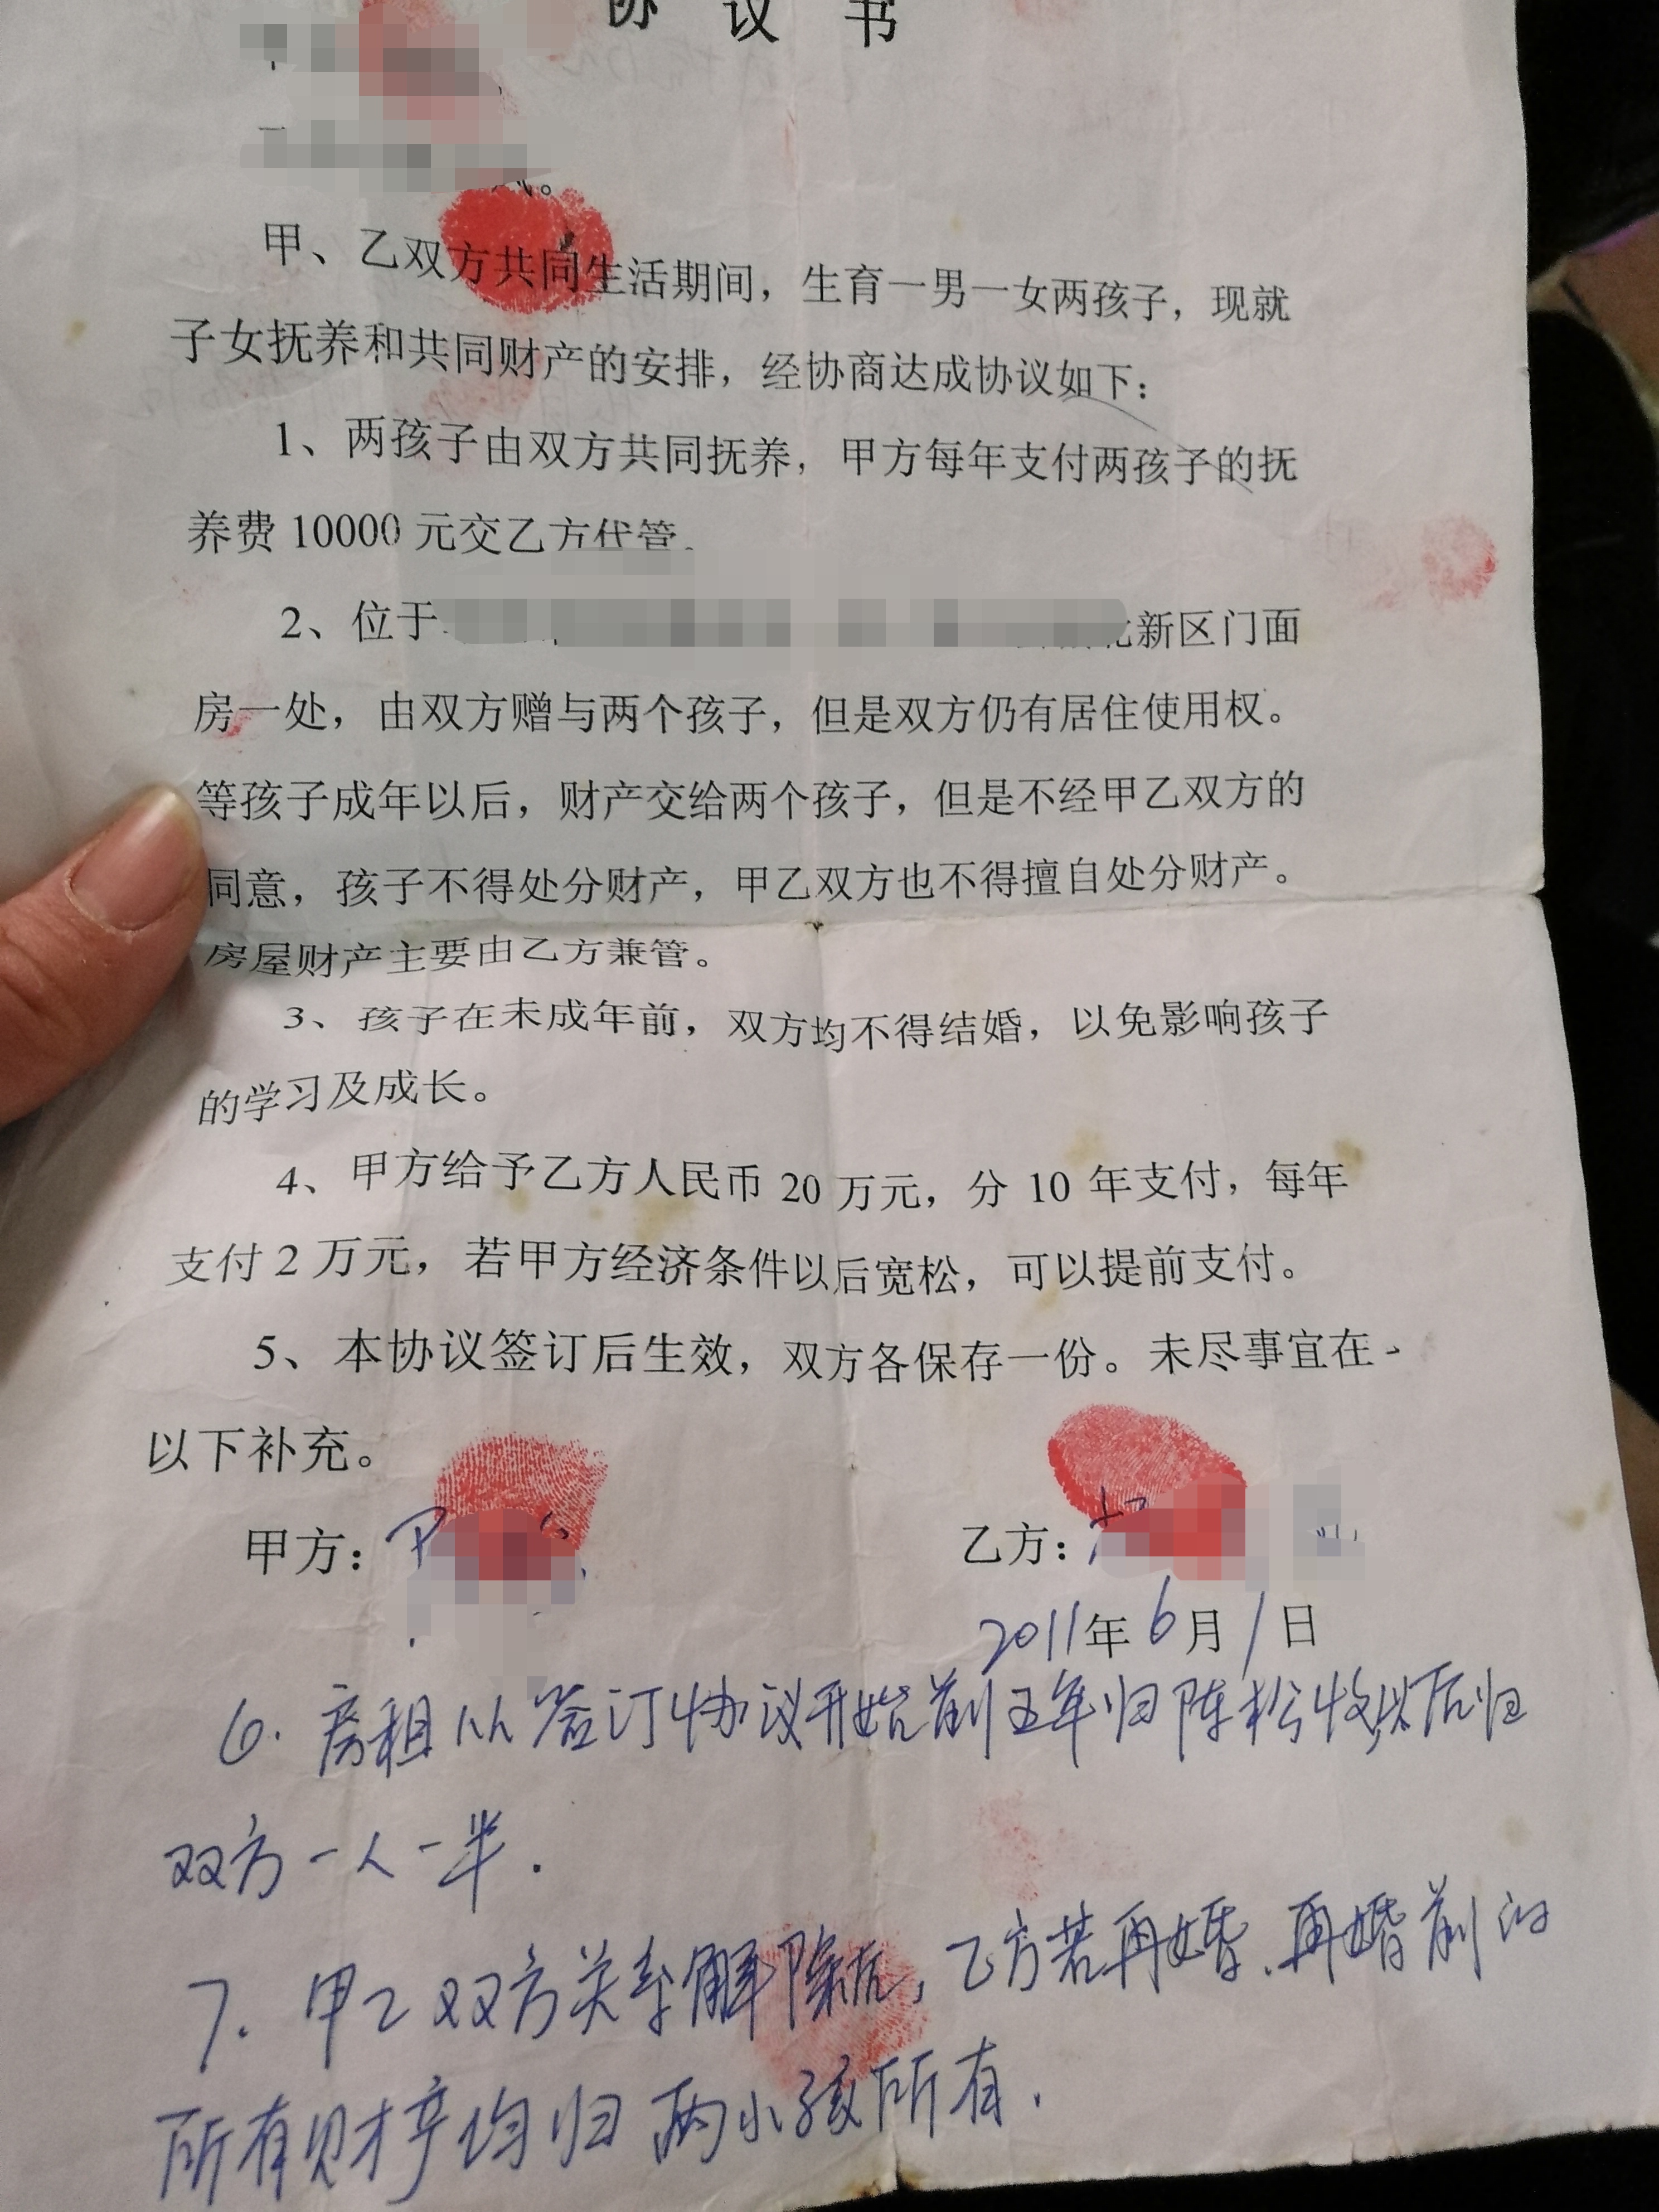 协 议 书
甲、乙双方共同生活期间，生育一男一女两孩子，现就
子女抚养和共同财产的安排，经协商达成协议如下：
1、两孩子由双方共同抚养，甲方每年支付两孩子的抚
养费 10000 元交乙方代管。
2、位于北新区门面
房一处，由双方赠与两个孩子，但是双方仍有居住使用权。
等孩子成年以后，财产交给两个孩子，但是不经甲乙双方的
同意，孩子不得处分财产，甲乙双方也不得擅自处分财产。
房屋财产主要由乙方兼管。
3、孩子在未成年前，双方均不得结婚，以免影响孩子
的学习及成长。
4、甲方给予乙方人民币 20 万元，分 10 年支付，每年
支付 2 万元，若甲方经济条件以后宽松，可以提前支付。
5、本协议签订后生效，双方各保存一份。未尽事宜在
以下补充。
甲方： 乙方：
2011年 6 月 1 日
6. 房租从签订协议开始前五年归陈松收,以后归
双方一人一半.
7. 甲乙双方关系解除后，乙方若再婚、再婚前的
所有财产均归两小孩所有.